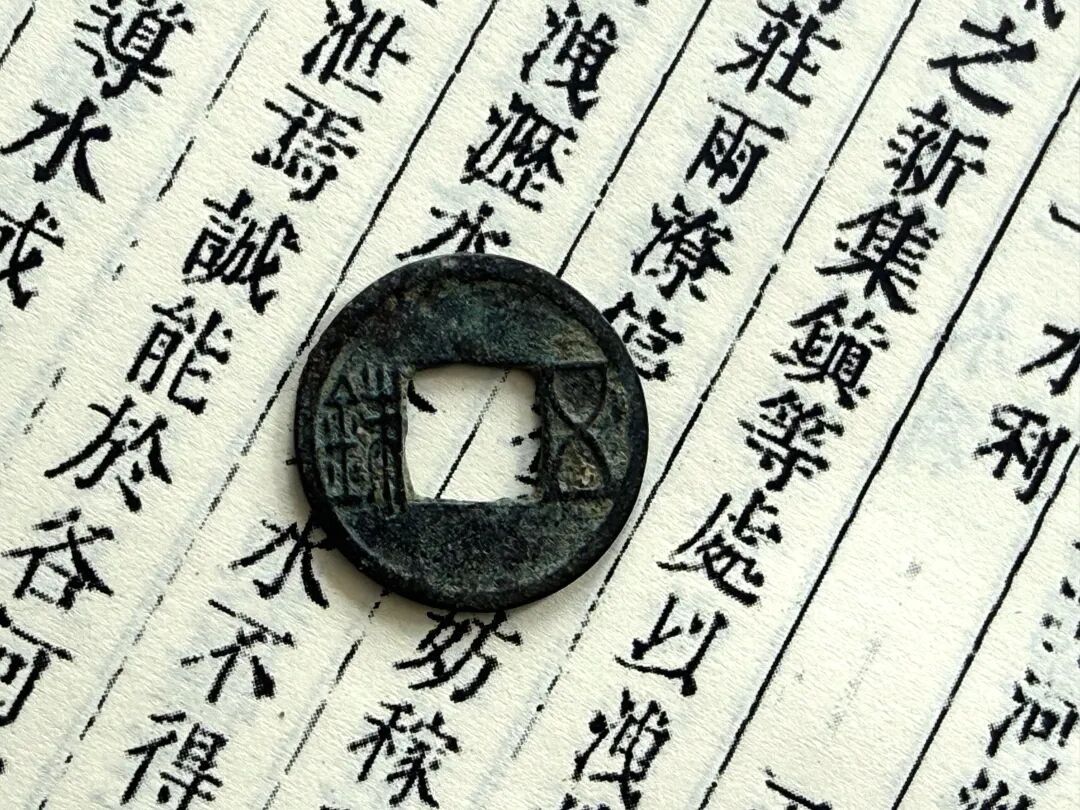 河
水利
之新集鎖等處以洩
莊雨潦停
妨稼
洩瀝水
水不得
泄焉誠能於谷河
導水或
五銖